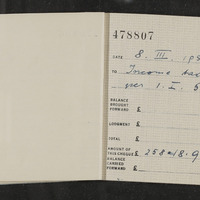 478807
DATE 8. III. 19
TO Income tax
per 1. I. 5
BALANCE
BROUGHT
FORWARD £
LODGMENT £
TOTAL £
AMOUNT OF
THIS CHEQUE £ 258-18-9
BALANCE
CARRIED
FORWARD £